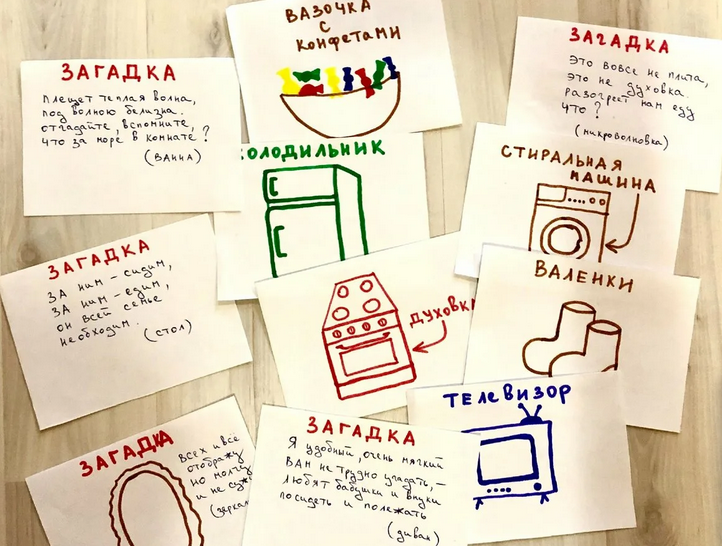 ВАЗОЧКА
С
КОНФЕТАМИ
ЗАГАДКА
Это вовсе не плита,
это не духовка.
Разогреет нам еду
что?
(микроволновка)
ЗАГАДКА
Плещет тёплая волна,
под волною белизна.
отгадайте, вспомните,
что за море в комнате?
(ванна)
ОЛОДИЛЬНИК
СТИРАЛЬНАЯ
МАШИНА
ЗАГАДКА
За ним – сидим,
За ним – едим,
он всей семье
необходим.
(стол)
ДУХОВК
ВАЛЕНКИ
ТЕЛЕВИЗОР
ЗАГАДКА
Всех и всё
отображу
но молчу
и не
(зеркал
ЗАГАДКА
Я удобный, очень мягкий
Вам не трудно угадать, –
любят бабушки и внуки
посидеть и полежать
(диван)